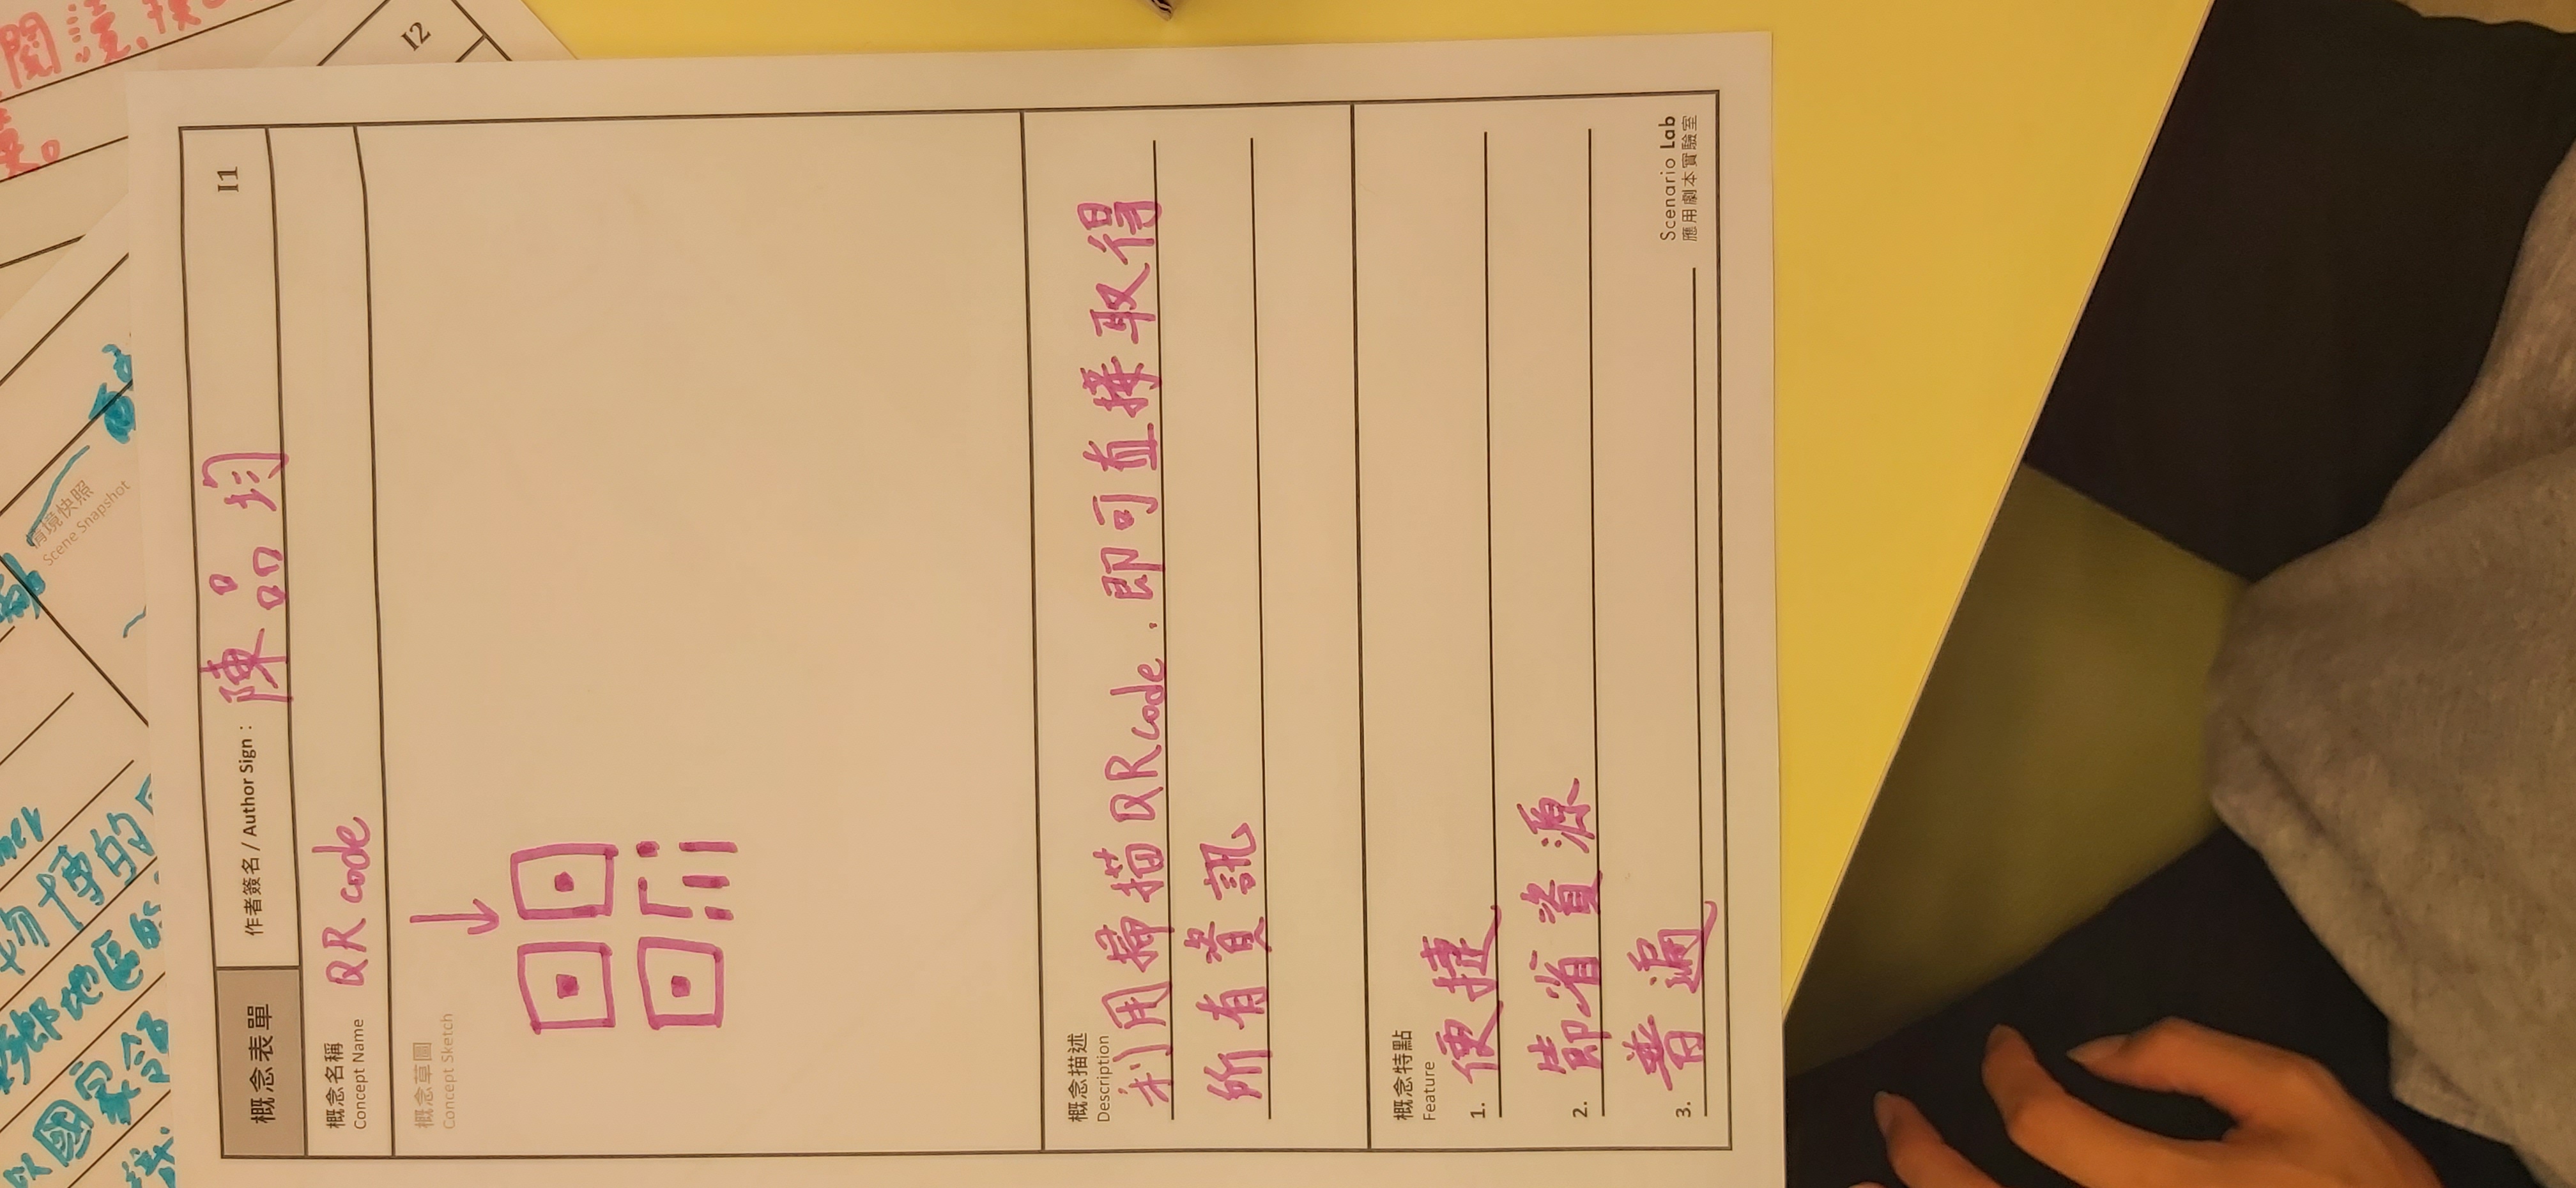 情境快照
Scene Snapshot
概念表單
作者簽名 / Author Sign：陳品均
I1
概念名稱
Concept Name
QR code
I2
概念草圖
Concept Sketch
概念描述
Description
利用掃描QRcode，即可直接取得
所有資訊
概念特點
Feature
1. 便捷
2. 節省資源
3. 普遍
Scenario Lab
應用劇本實驗室